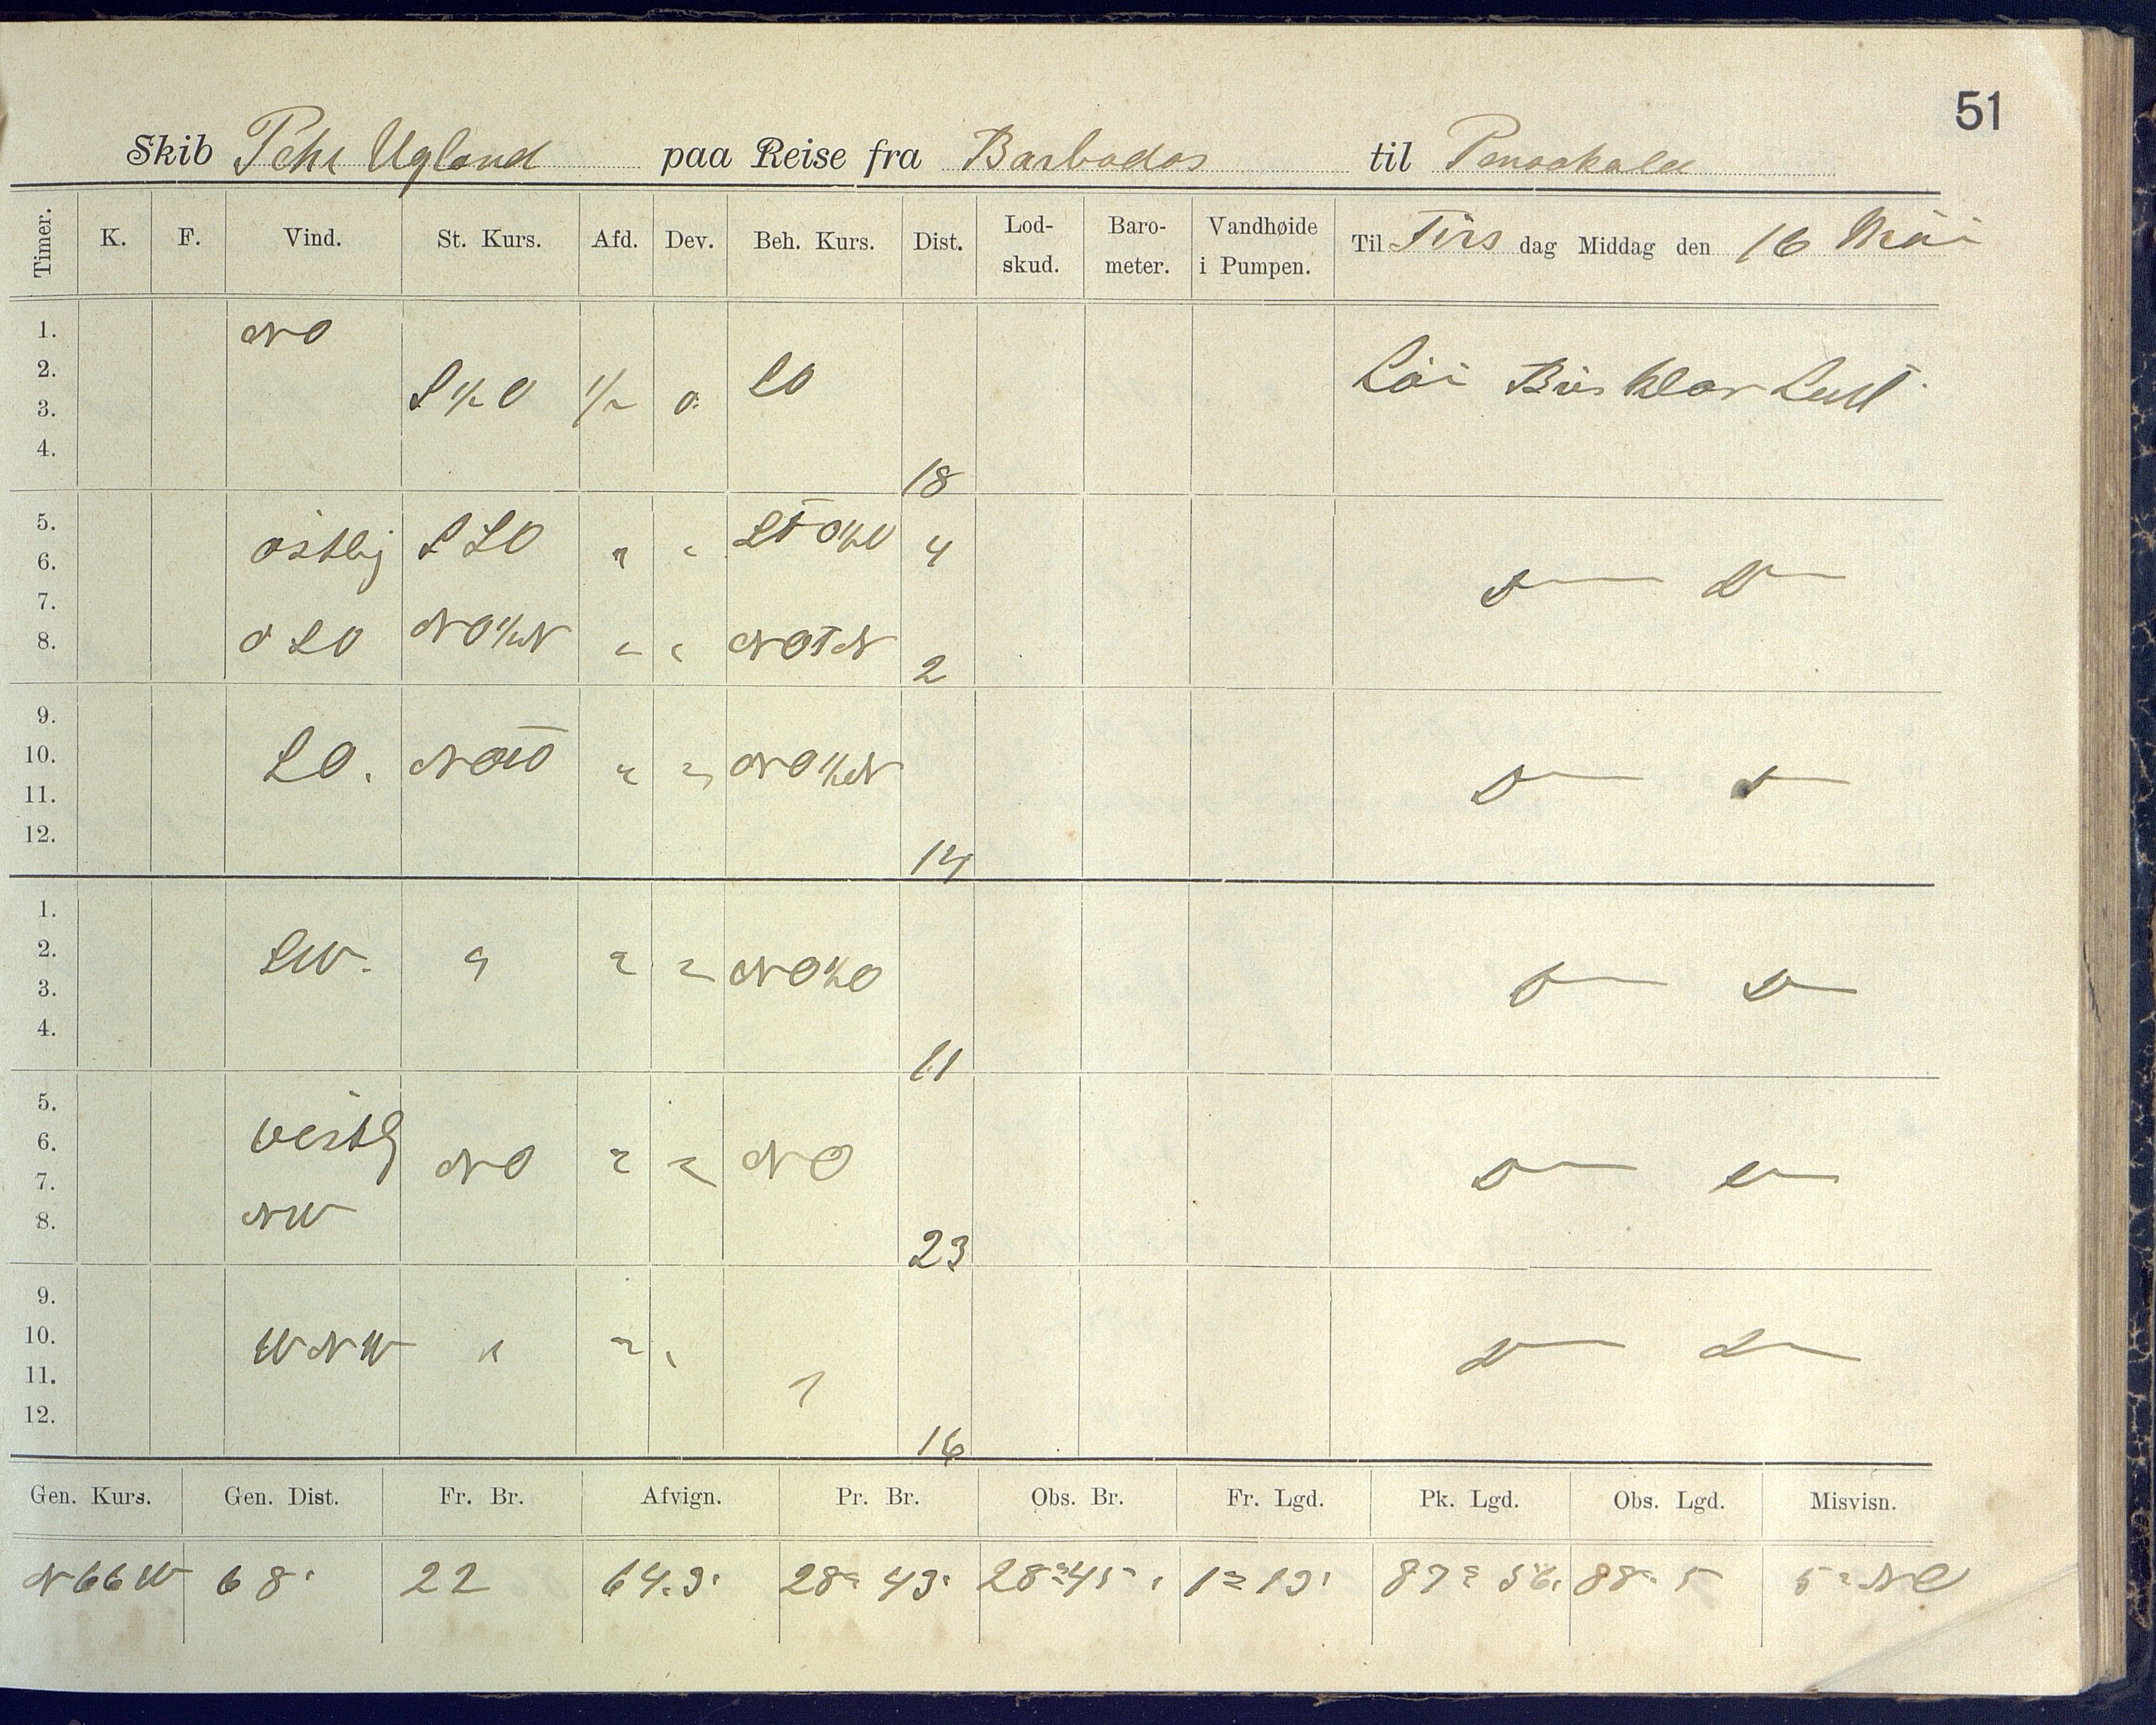 51
Skib Uglend paa Reise fra Barbados til
Timer. K. F. Vind. St. Kurs. Afd. Dev. Beh. Kurs. Dist. Lod-skud. Baro-meter. Vandhøide i Pumpen. Til Tirs dag Middag den 16 Mai
1. NO
2. S½O ½ 0 SO Lai Bris klar Luft
3.
4. 18
5. östlig SSO " " 4
6.
7.
8. O SO NO½N " " NOTN 2
9.
10. SO. NOTO " " NO½N
11.
12. 14
1.
2. SW. " " " NO½O
3.
4. 11
5.
6. vestlg NO " " NO
7.
8. NW 23
9.
10. WNW " " "
11. "
12. 16
Gen. Kurs. Gen. Dist. Fr. Br. Afvign. Pr. Br. Obs. Br. Fr. Lgd. Pk. Lgd. Obs. Lgd. Misvisn.
N66W 68' 22 64.9' 28° 43' 28° 45' 1° 13' 87° 56' 88° 5 5°